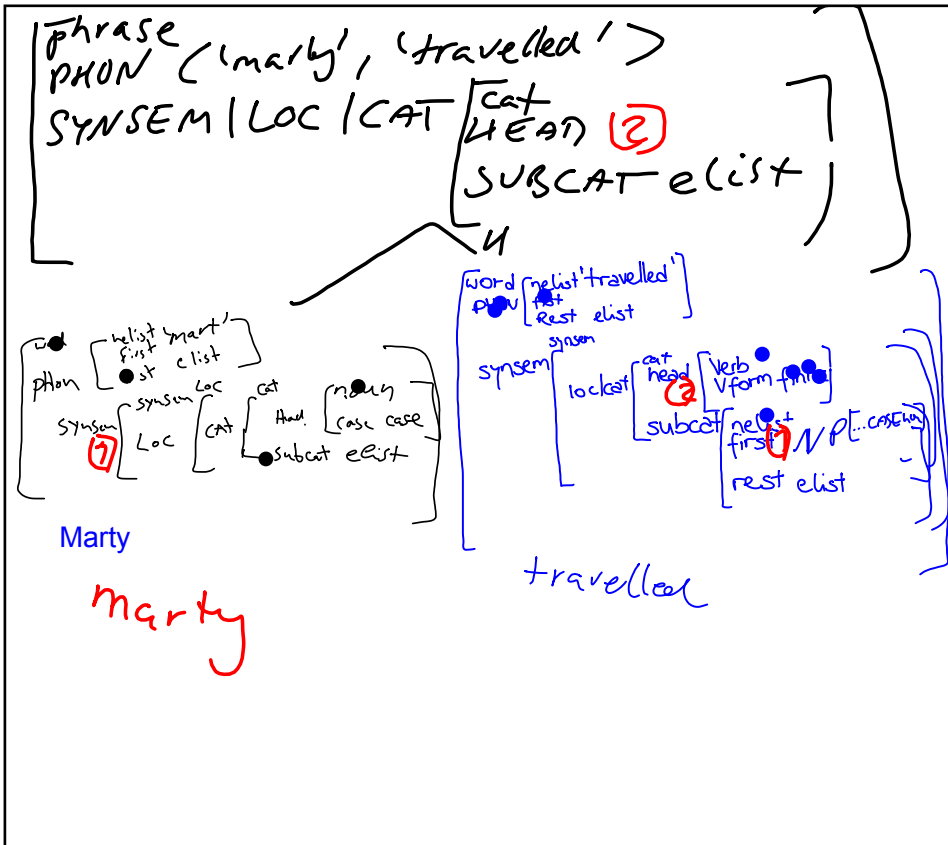 phrase
PHON ('marty', 'travelled' >
SYNSEM | LOC | CAT
cat
HEAD 2
SUBCAT elist
H
nelist 'mart'
first
elist
PHON
synsen
1
synsem
LOC
LOC
CAT
cat
Head
noun
case case
subcat elist
Marty
marty
word
PHON
nelist 'travelled'
Rest elist
synsem
synsem
loc|cat
cat
head
2
Verb
Vform
subcat
nelist
first 1 NP
rest elist
travelled